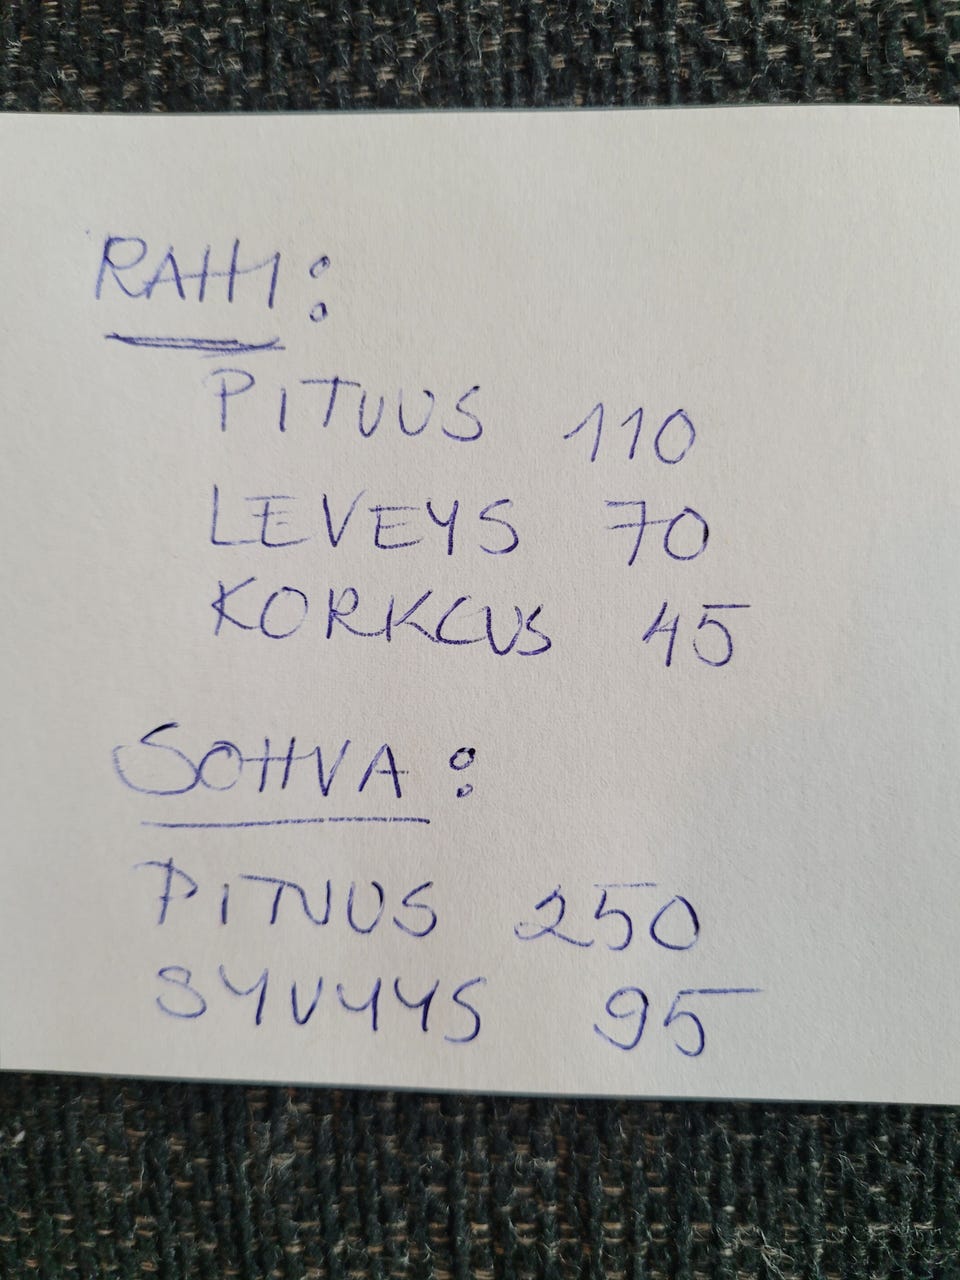 RAHI:
PITUUS 110
LEVEYS 70
KORKEUS 45
SOHVA:
PITUUS 250
SYVYYS 95